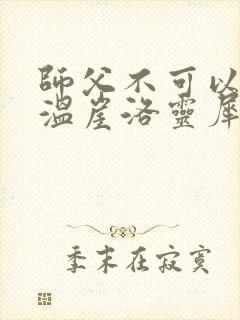 師父不可以
溫崖洛靈犀
季末在寂寞